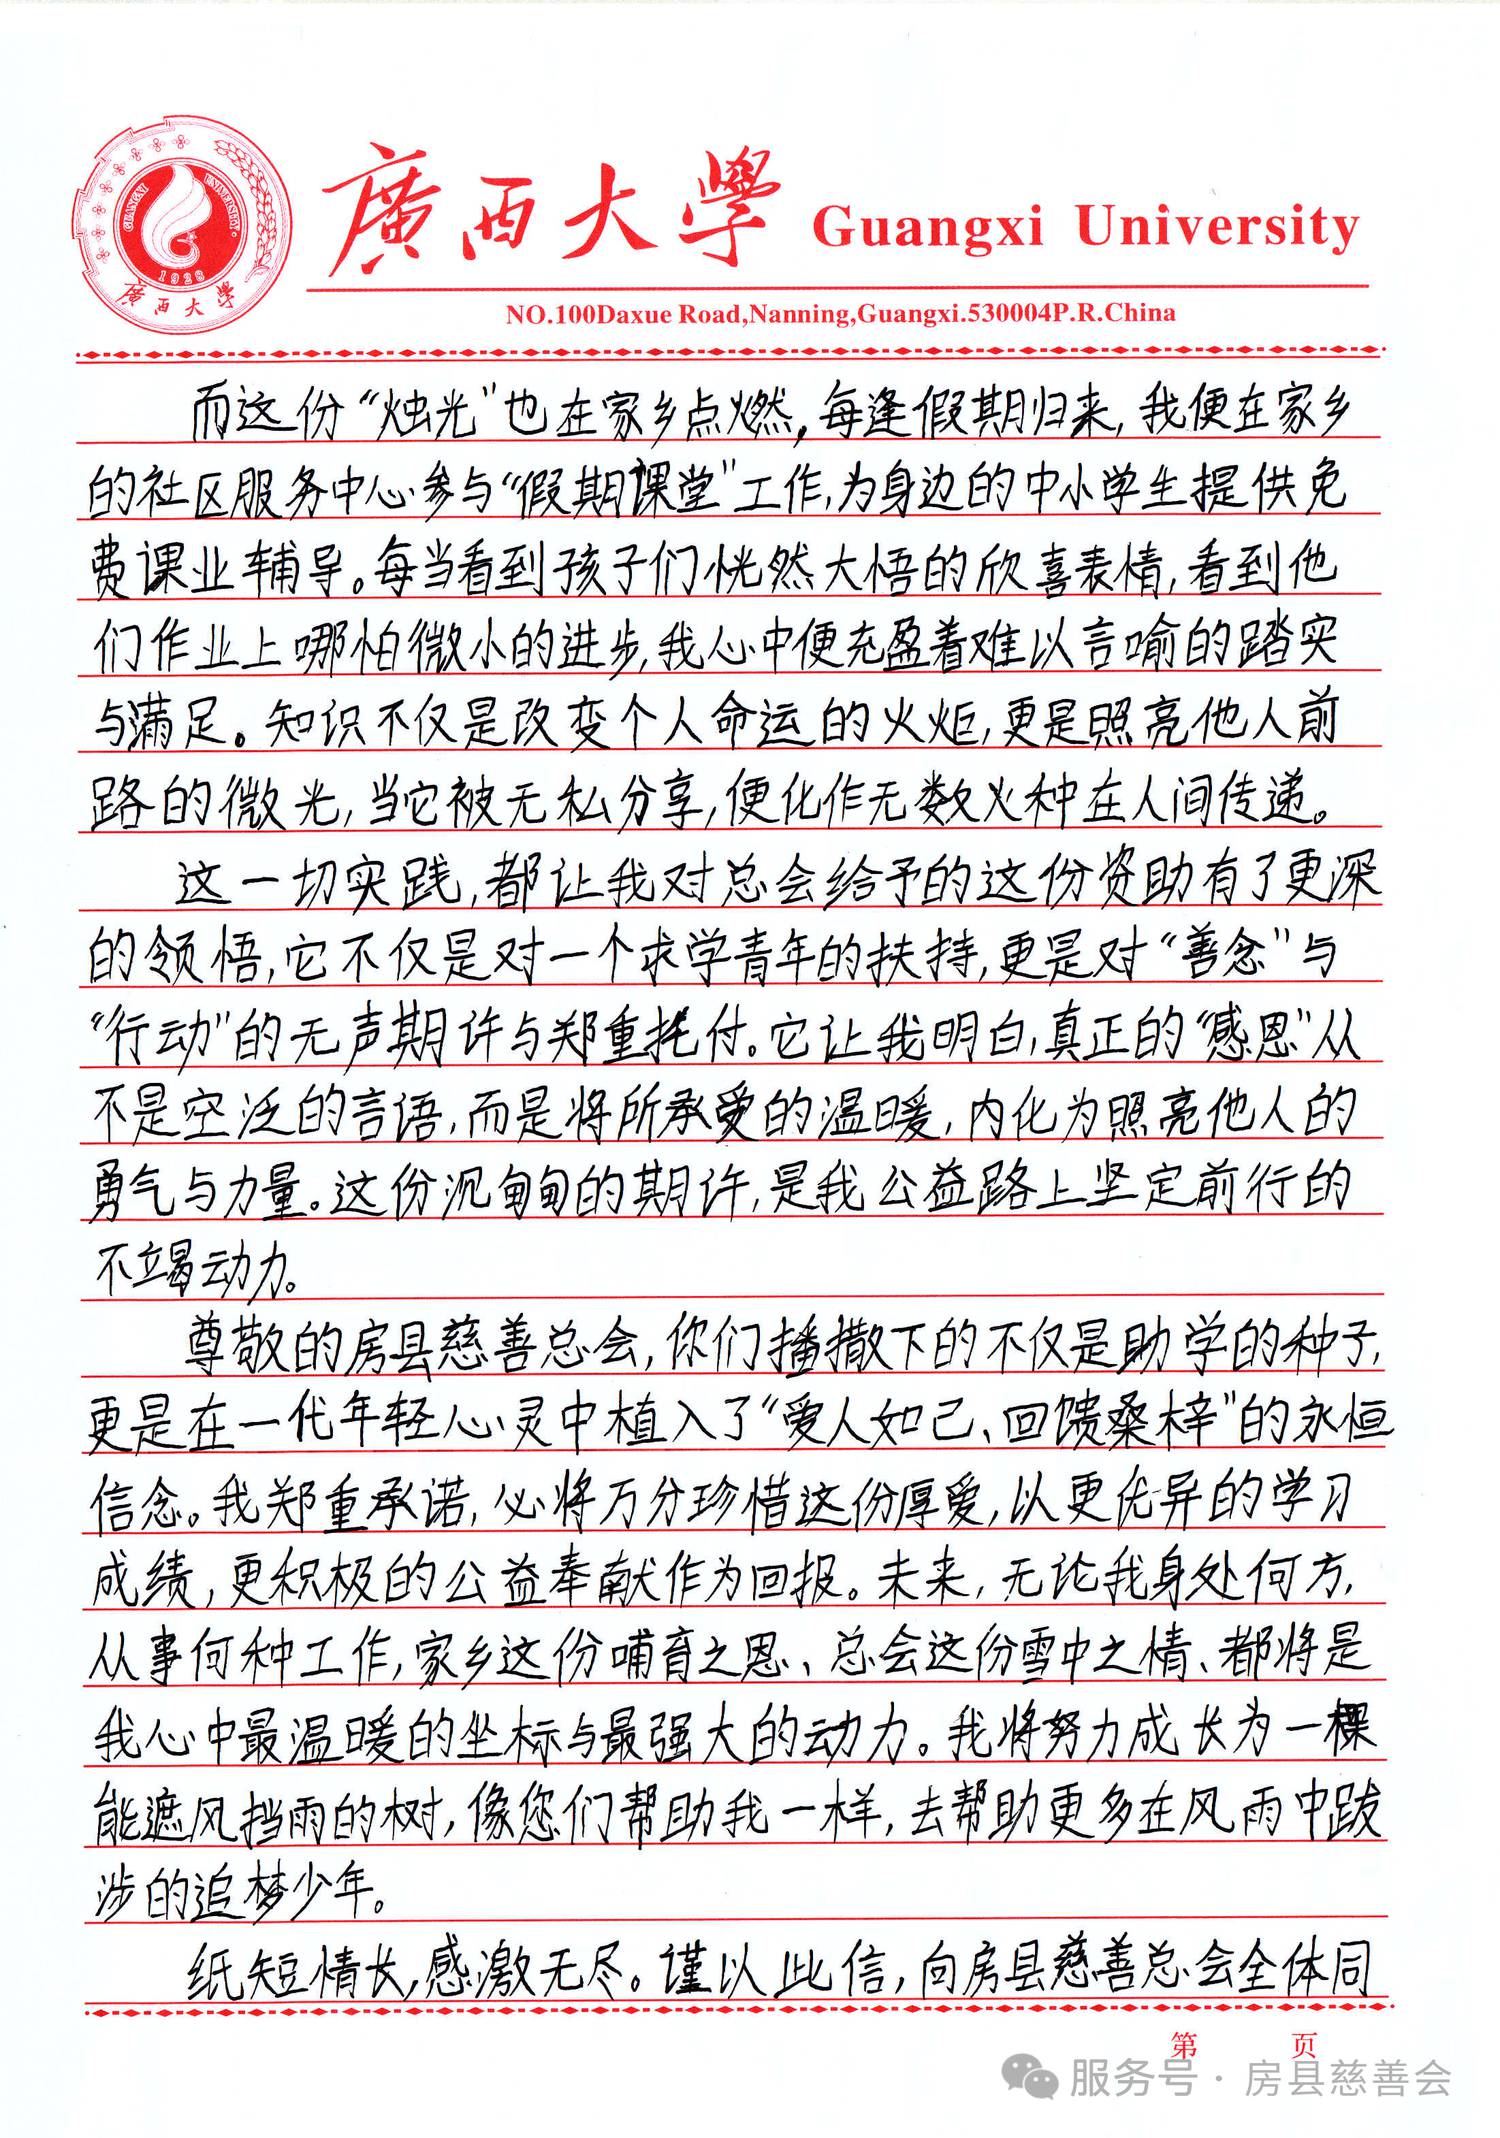 廣西大學 Guangxi University
GUANGXI UNIVERSITY
1928
广西大学
NO.100Daxue Road,Nanning,Guangxi.530004P.R.China
而这份“烛光”也在家乡点燃,每逢假期归来,我便在家乡
的社区服务中心参与“假期课堂”工作,为身边的中小学生提供免
费课业辅导。每当看到孩子们恍然大悟的欣喜表情,看到他
们作业上哪怕微小的进步,我心中便充盈着难以言喻的踏实
与满足。知识不仅是改变个人命运的火炬,更是照亮他人前
路的微光,当它被无私分享,便化作无数火种在人间传递。
这一切实践,都让我对总会给予的这份资助有了更深
的领悟,它不仅是对一个求学青年的扶持,更是对“善念”与
“行动”的无声期许与郑重托付。它让我明白,真正的“感恩”从
不是空泛的言语,而是将所承受的温暖,内化为照亮他人的
勇气与力量。这份沉甸甸的期许,是我公益路上坚定前行的
不竭动力。
尊敬的房县慈善总会,你们播撒下的不仅是助学的种子,
更是在一代年轻心灵中植入了“爱人如己、回馈桑梓”的永恒
信念。我郑重承诺,必将万分珍惜这份厚爱,以更优异的学习
成绩,更积极的公益奉献作为回报。未来,无论我身处何方,
从事何种工作,家乡这份哺育之恩、总会这份雪中之情、都将是
我心中最温暖的坐标与最强大的动力。我将努力成长为一棵
能遮风挡雨的树,像您们帮助我一样,去帮助更多在风雨中跋
涉的追梦少年。
纸短情长,感激无尽。谨以此信,向房县慈善总会全体同
第 页
服务号·房县慈善会